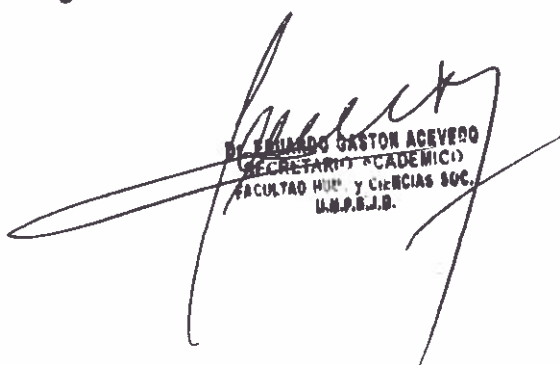 EDUARDO GASTON ACEVEDO
SECRETARIO ACADEMICO
FACULTAD HUM. y CIENCIAS SOC.